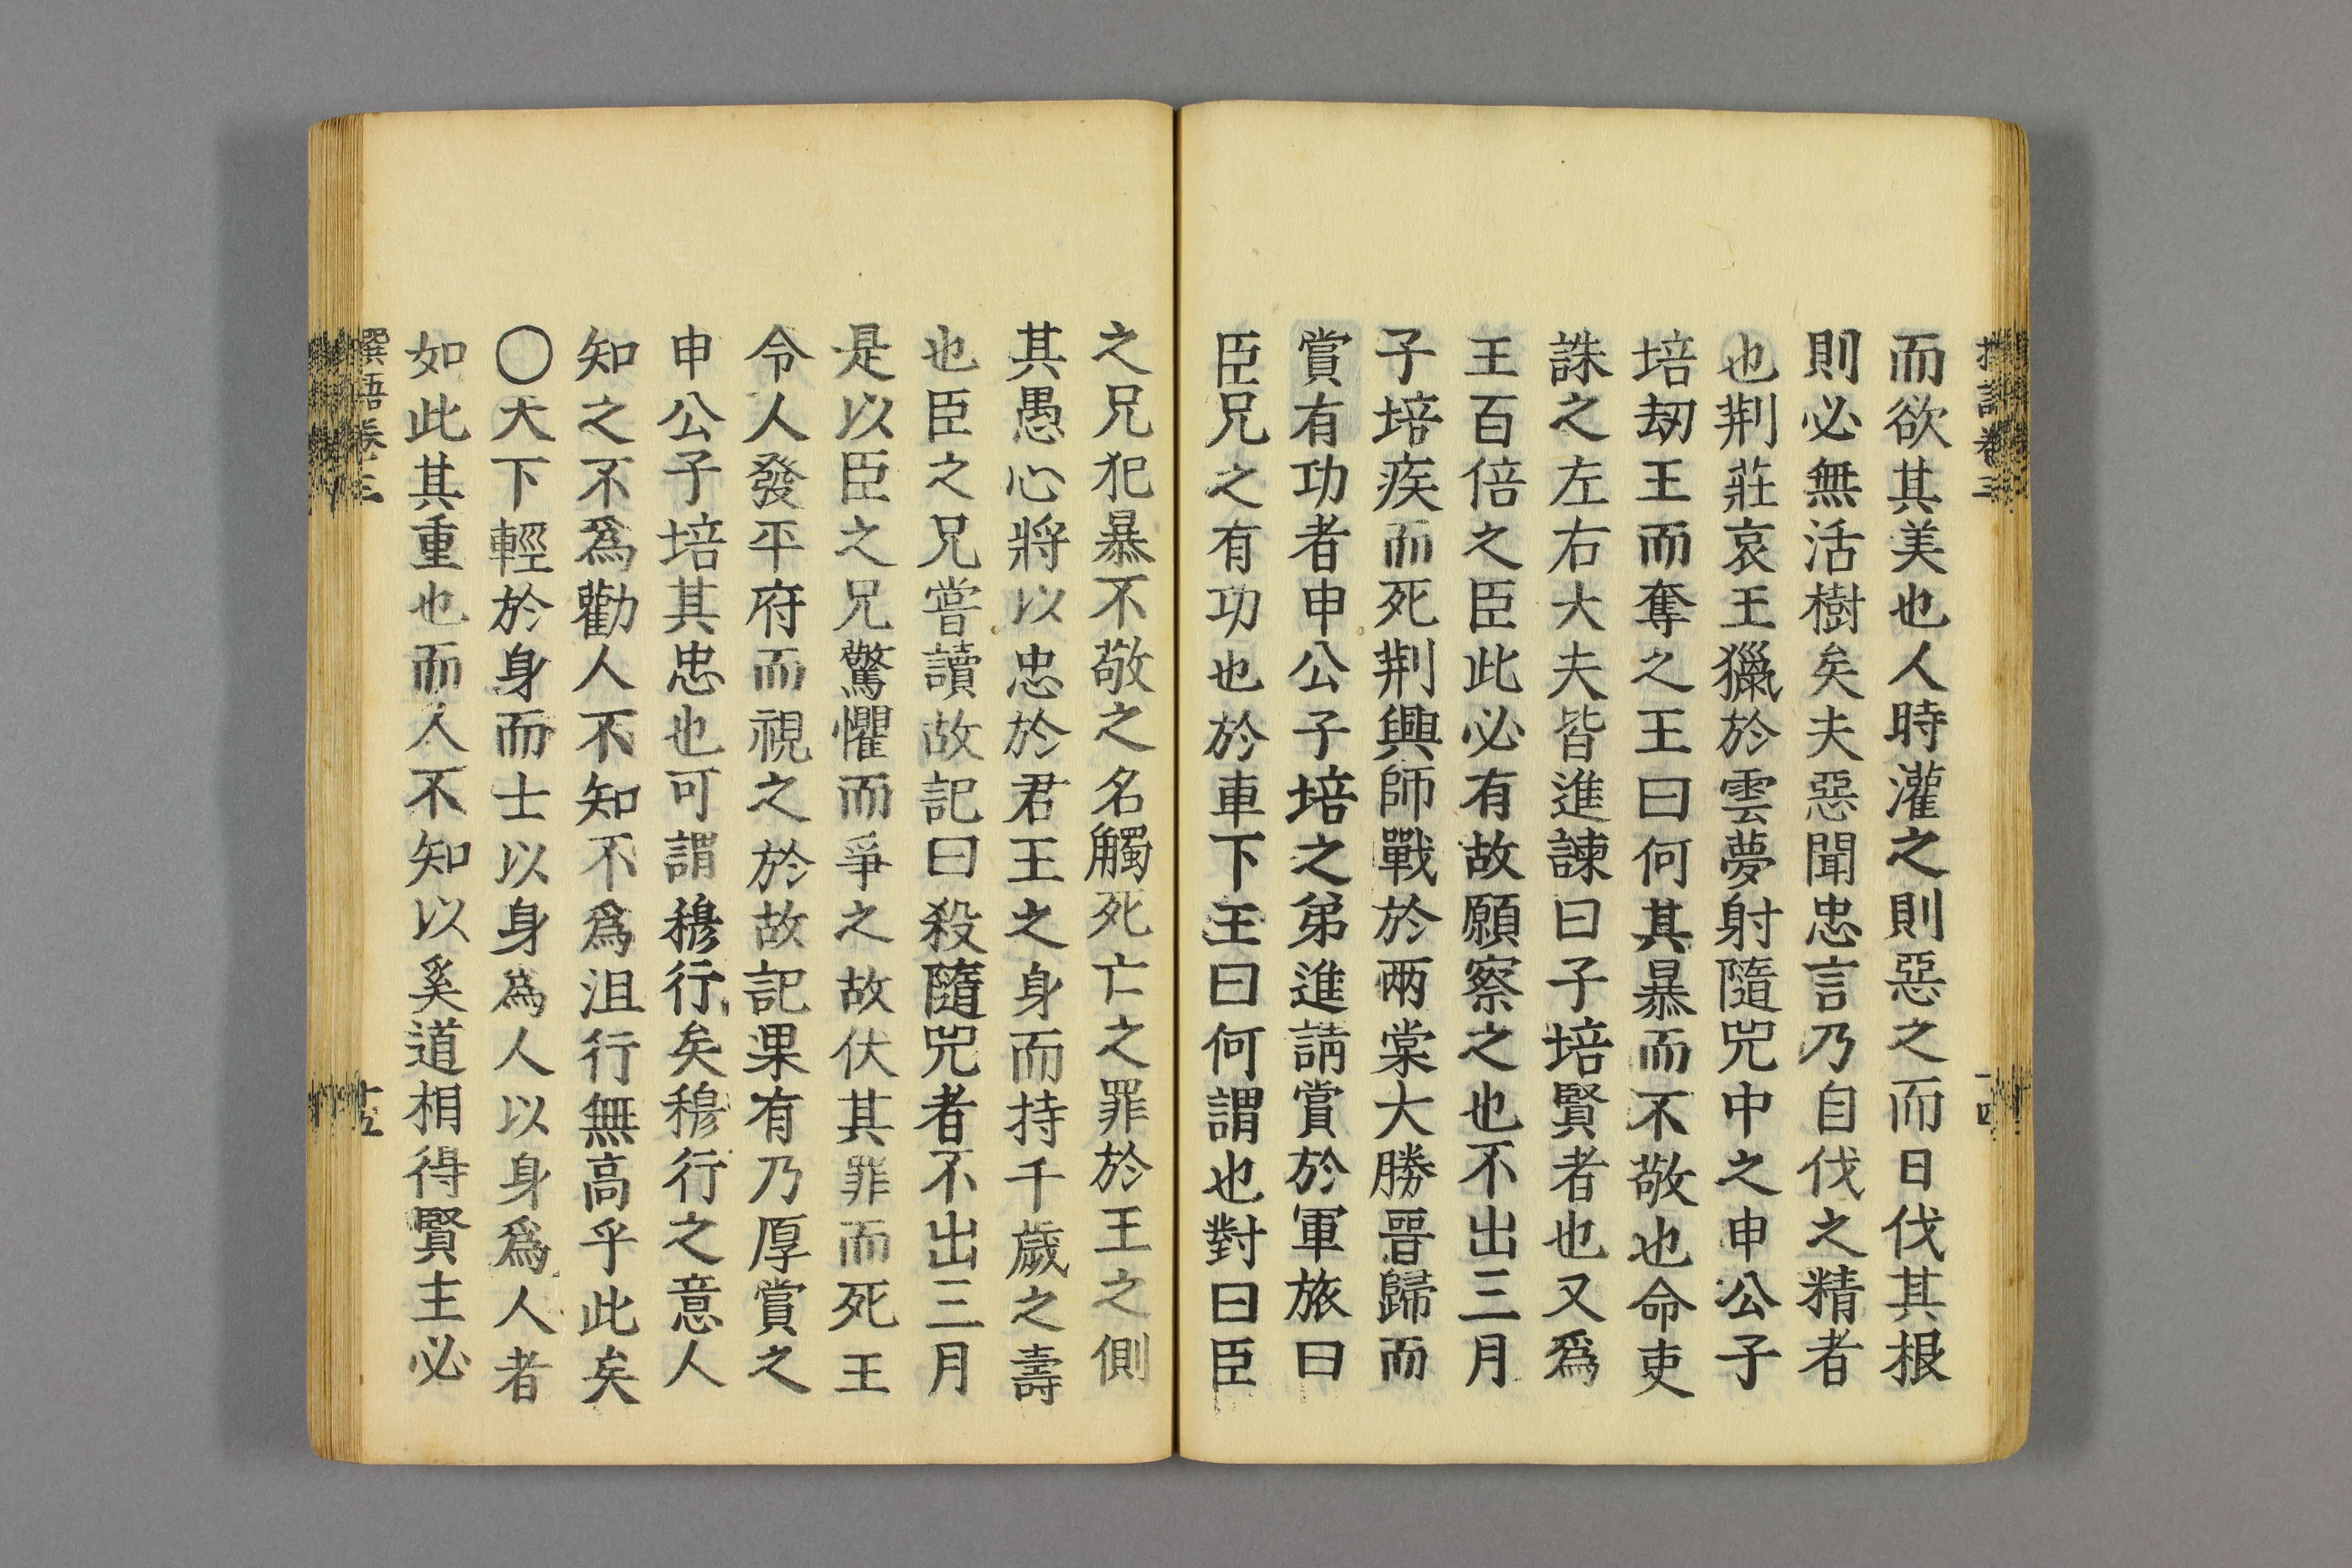 而欲其美也人時灌之則惡之而日伐其根
則必無活樹矣夫惡聞忠言乃自伐之精者
也荆莊哀王獵於雲夢射隨兕中之申公子
培刧王而奪之王曰何其暴而不敬也命吏
誅之左右大夫皆進諫曰子培賢者也又爲
王百倍之臣此必有故願察之也不出三月
子培疾而死荆興師戰於兩棠大勝晉歸而
賞有功者申公子培之弟進請賞於軍旅曰
臣兄之有功也於車下王曰何謂也對曰臣
之兄犯暴不敬之名觸死亡之罪於王之側
其愚心將以忠於君王之身而持千歲之壽
也臣之兄嘗讀故記曰殺隨兕者不出三月
是以臣之兄驚懼而爭之故伏其罪而死王
令人發平府而視之於故記果有乃厚賞之
申公子培其忠也可謂穆行矣穆行之意人
知之不爲勸人不知不爲沮行無高乎此矣
〇大下輕於身而士以身爲人以身爲人者
如此其重也而人不知以奚道相得賢主必
撰語卷三
十五